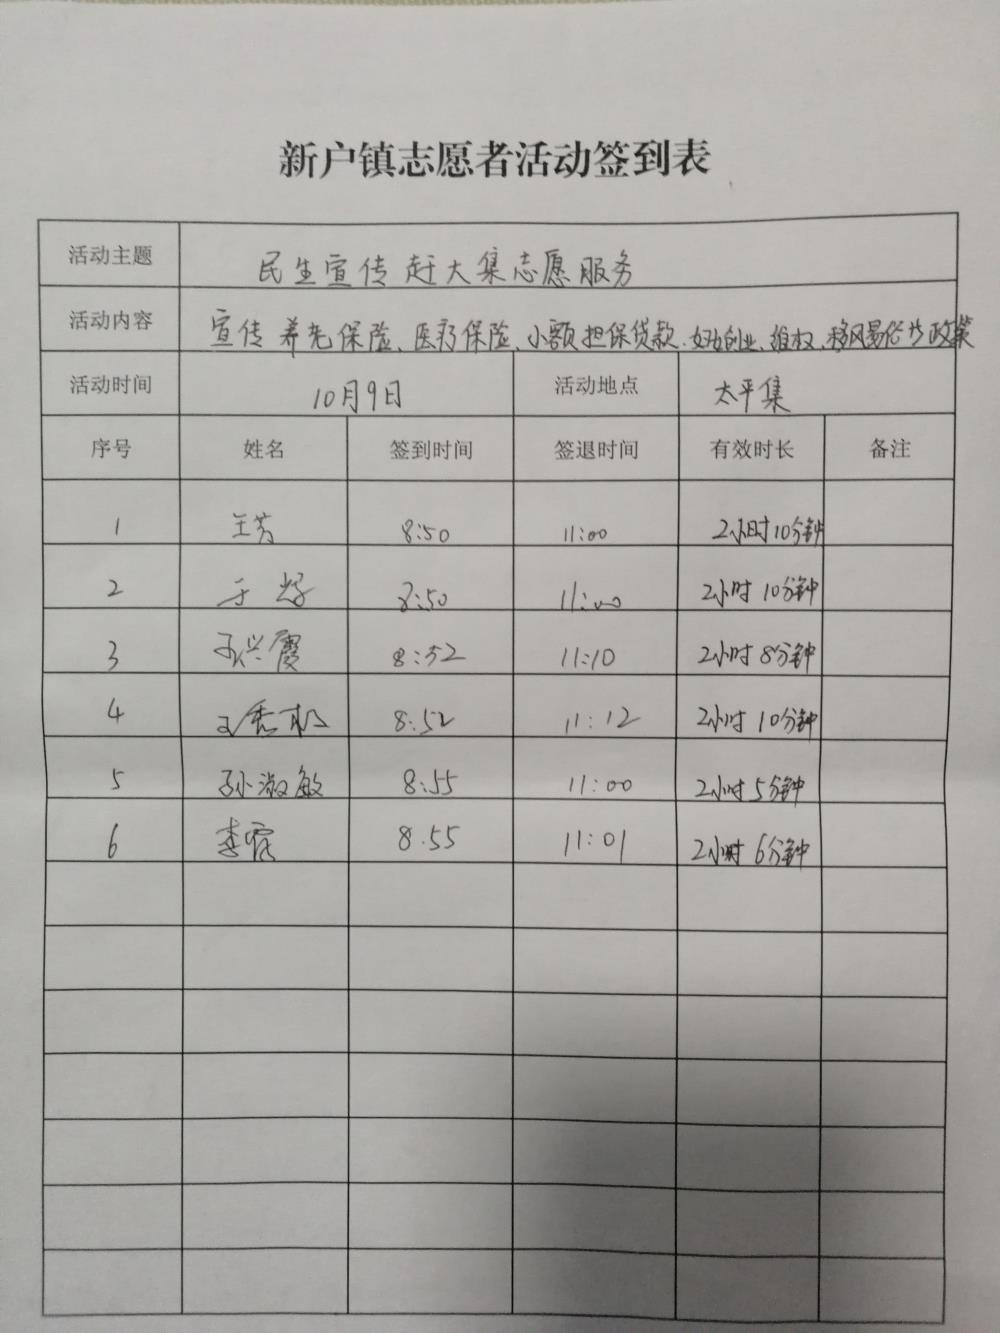 新户镇志愿者活动签到表
活动主题 民生宣传赶大集志愿服务
活动内容 宣传养老保险、医疗保险、小额担保贷款、妇女创业、维权、移风易俗 政策
活动时间 10月9日 活动地点 太平集
序号 姓名 签到时间 签退时间 有效时长 备注
1 王芳 8:50 11:00 2小时10分钟
2 8:50 11:00 2小时10分钟
3 8:52 11:10 2小时8分钟
4 8:52 11:12 2小时10分钟
5 孙淑敏 8:55 11:00 2小时5分钟
6 李霞 8.55 11:01 2小时6分钟